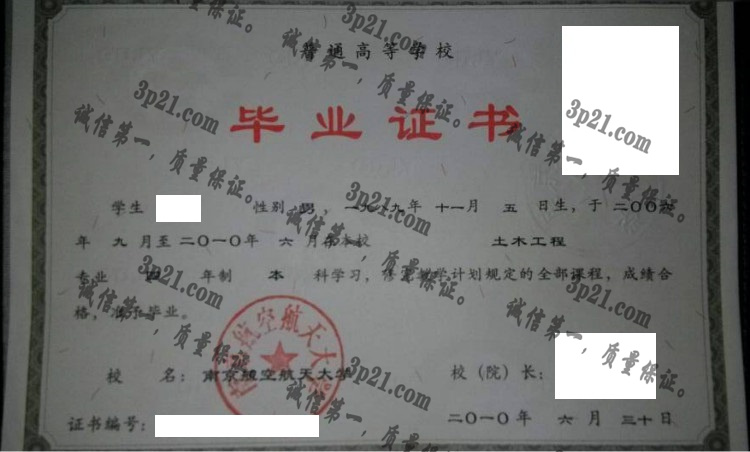 普通高等学校
毕业证书
学生 性别 男，一九八九年 十一月 五 日生，于 二〇〇六
年 九 月至二〇一〇年 六 月在本校 土木工程
专业 四 年制 本 科学习，修完教学计划规定的全部课程，成绩合
格，准予毕业。
南京航空航天大学
校 名：南京航空航天大学 校（院）长：
证书编号： 二〇一〇年 六 月 三十日
3p21.com
诚信第一，质量保证。
3p21.com
诚信第一，质量保证。
3p21.com
诚信第一，质量保证。
3p21.com
诚信第一，质量保证。
3p21.com
诚信第一，质量保证。
3p21.com
诚信第一，质量保证。
3p21.com
诚信第一，质量保证。